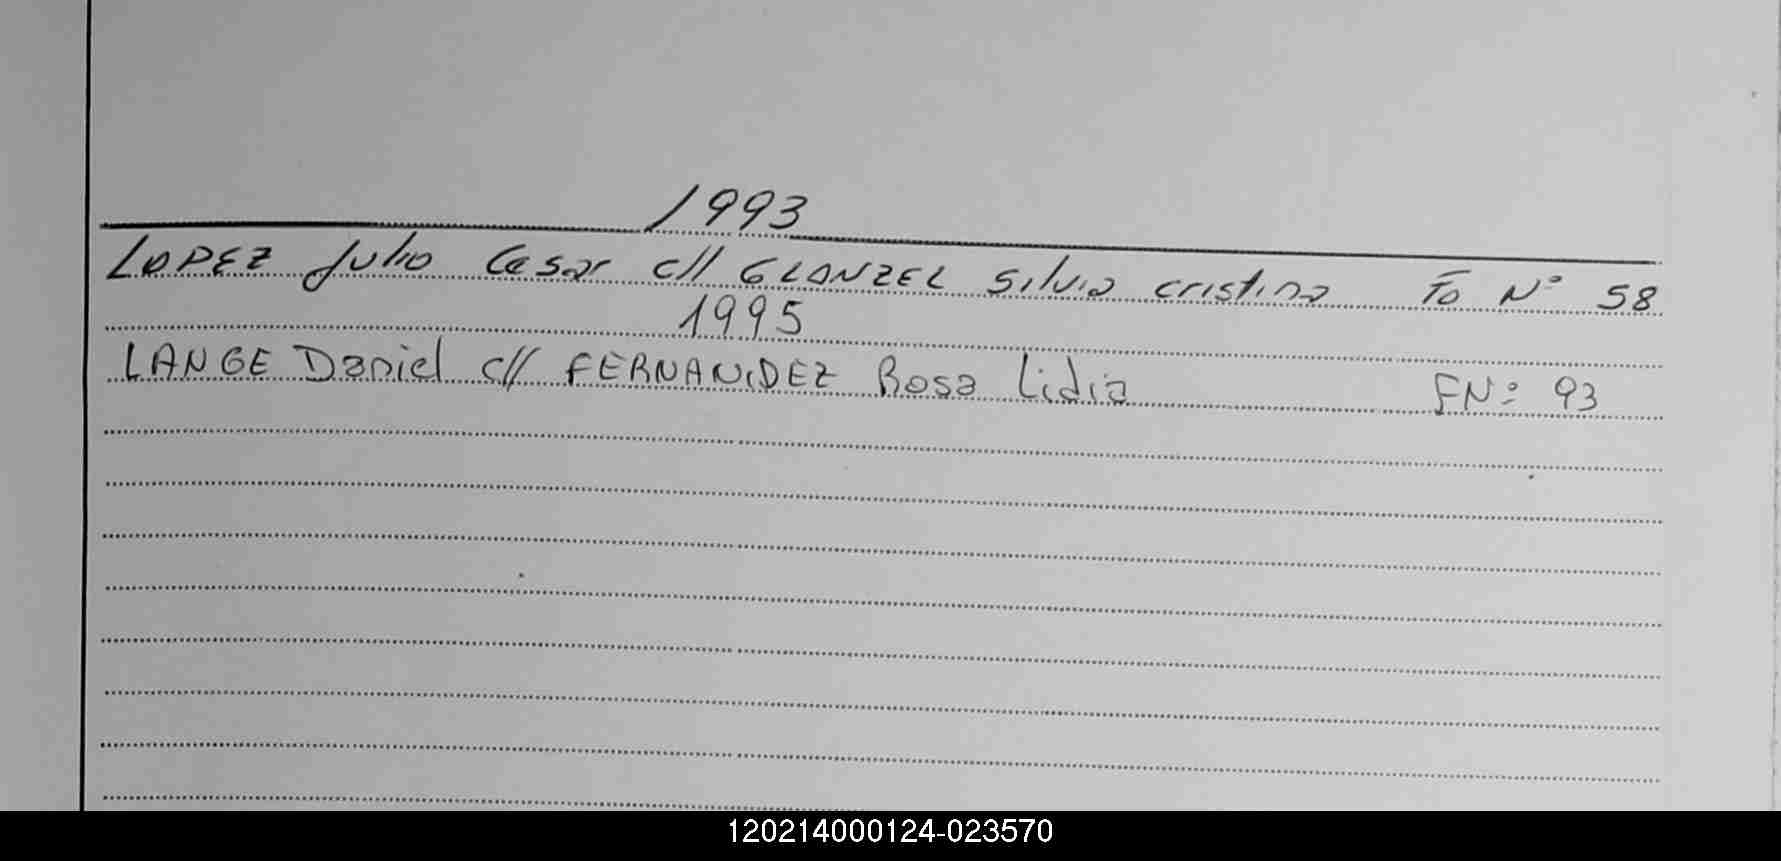 1993
LOPEZ Julio Cesar c// GLANZEL Silvia cristina Fo Nº 58
1995
LANGE Daniel c// FERNANDEZ Rosa Lidia FNº 93
120214000124-023570